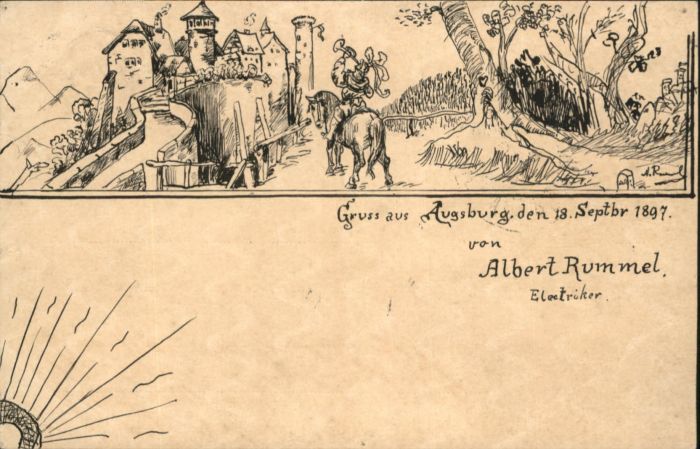 A. Rummel
Gruss aus Augsburg, den 18. Septbr 1897.
von
Albert Rummel.
Electriker.